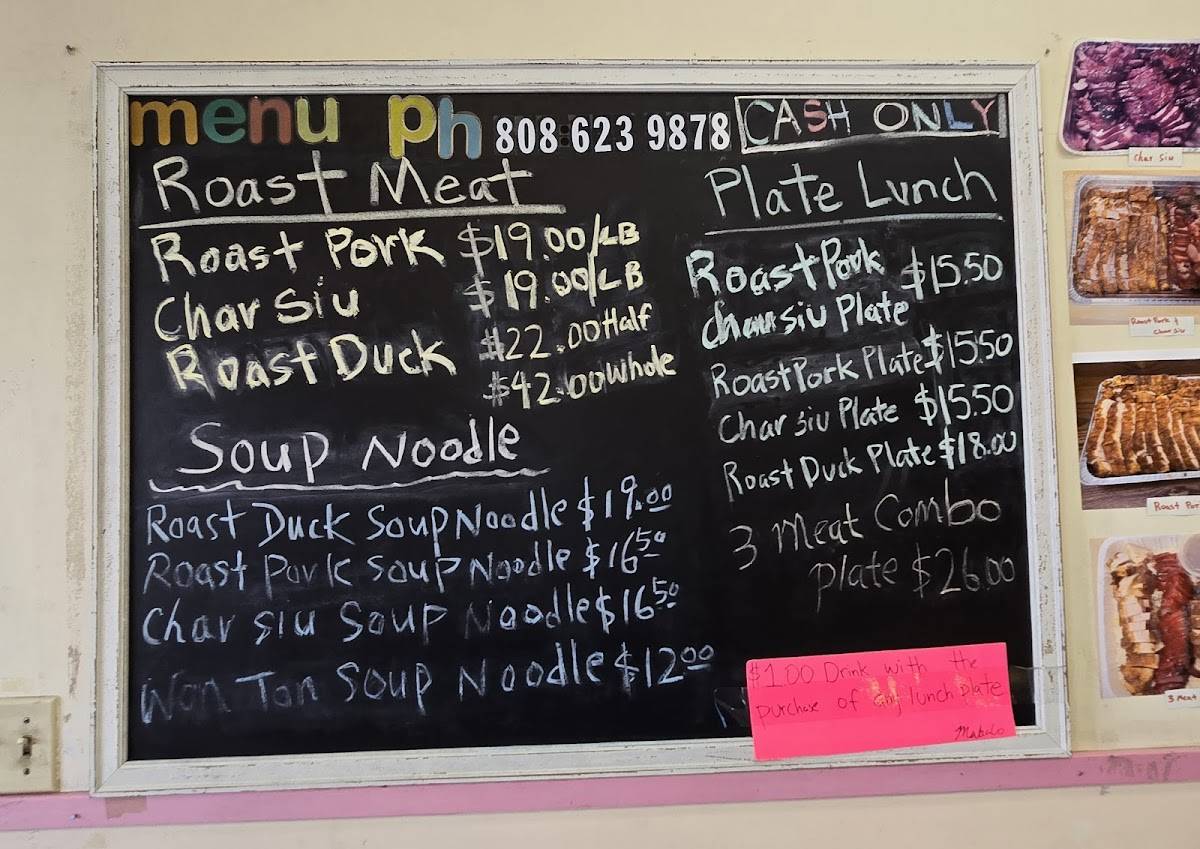 menu ph 808 623 9878 CASH ONLY
Roast Meat
Roast Pork $19.00/LB
Char Siu $19.00/LB
Roast Duck $22.00 Half
$42.00 Whole
Soup Noodle
Roast Duck Soup Noodle $19.00
Roast Pork Soup Noodle $16.50
Char siu Soup Noodle $16.50
Won Ton Soup Noodle $12.00
Plate Lunch
Roast Pork $15.50
Char siu Plate
Roast Pork Plate $15.50
Char siu Plate $15.50
Roast Duck Plate $18.00
3 Meat Combo
plate $26.00
$1.00 Drink with the
purchase of any lunch plate
Mahalo
Char Siu
Roast Pork &
Char Siu
Roast Por
3 Meat